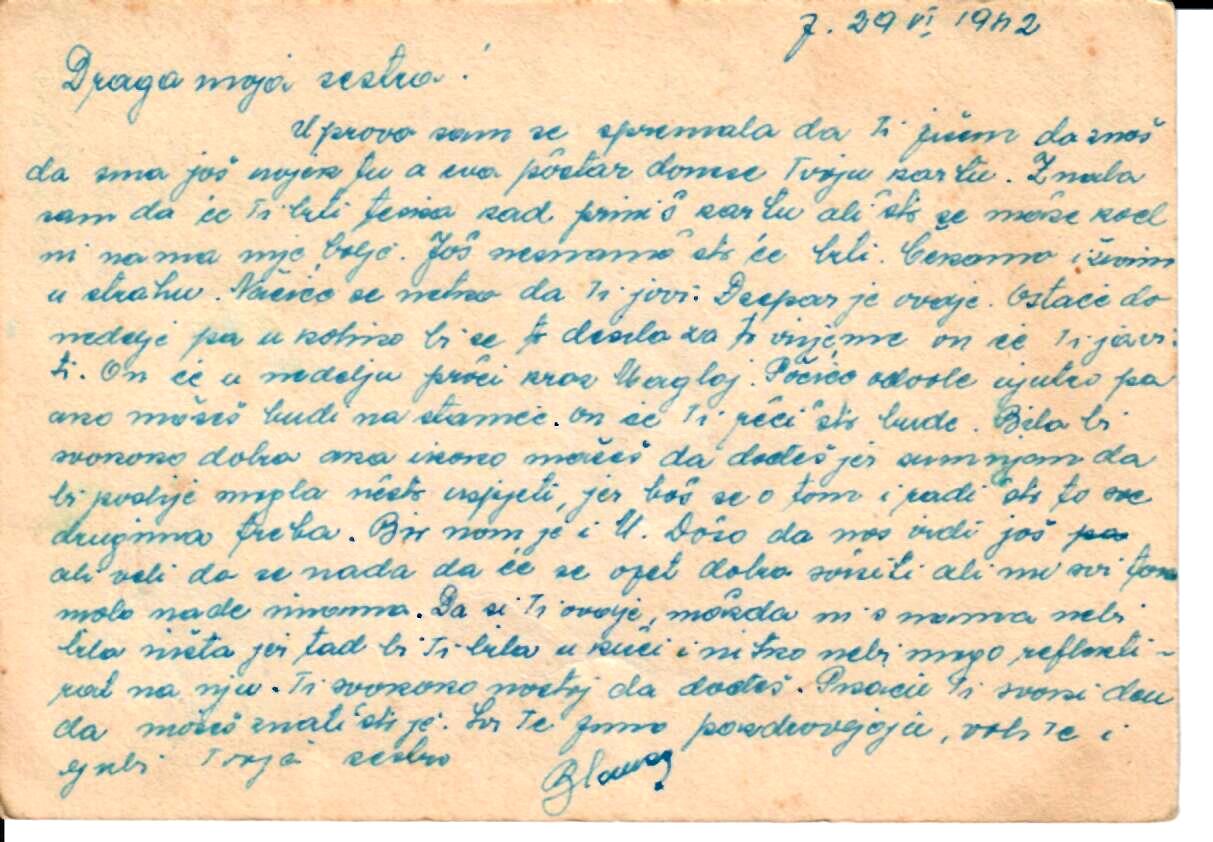 7. 29 VI 1942
Draga moja sestro!
Upravo sam se spremala da Ti pišem da znaš
da sma još uvjek tu a eva poštar donese Tvoju kartu. Znala
sam da će Ti biti teško kad primiš kartu ali što se može kad
ni nama nije bolje. Još neznamo što će biti. Čekamo i živim
u strahu. se netko da Ti javi. je ovdje. Ostaće do
nedelje pa u koliko bi se desila za to vrijeme on će Ti javi-
ti. On će u nedelju proći kroz Maglaj. Poćiće odovle ujutro pa
ako možeš budi na stanici. on će Ti reći što bude. Bila bi
svakako dobro ako ikako možeš da dođeš jer sumnjam da
bi poslije mogla nešto uspjeti, jer baš se o tom i radi što to sve
drugima treba. Bio nam je i U. Došo da nas vidi još pa
ali veli da se nada da će se opet dobro svršiti ali mi svi
malo nade imamo. Da si Ti ovdje, možda ni s nama nebi
bila ništa jer tad bi Ti bila u kući i nitko nebi mogo reflekti-
rat na nju. Ti svakako nastoj da dođeš. Pisaću Ti svaki dan
da možeš znati što je. Svi Te puno pozdravljaju, voli Te i
ljubi Tvoja sestra
Blanka